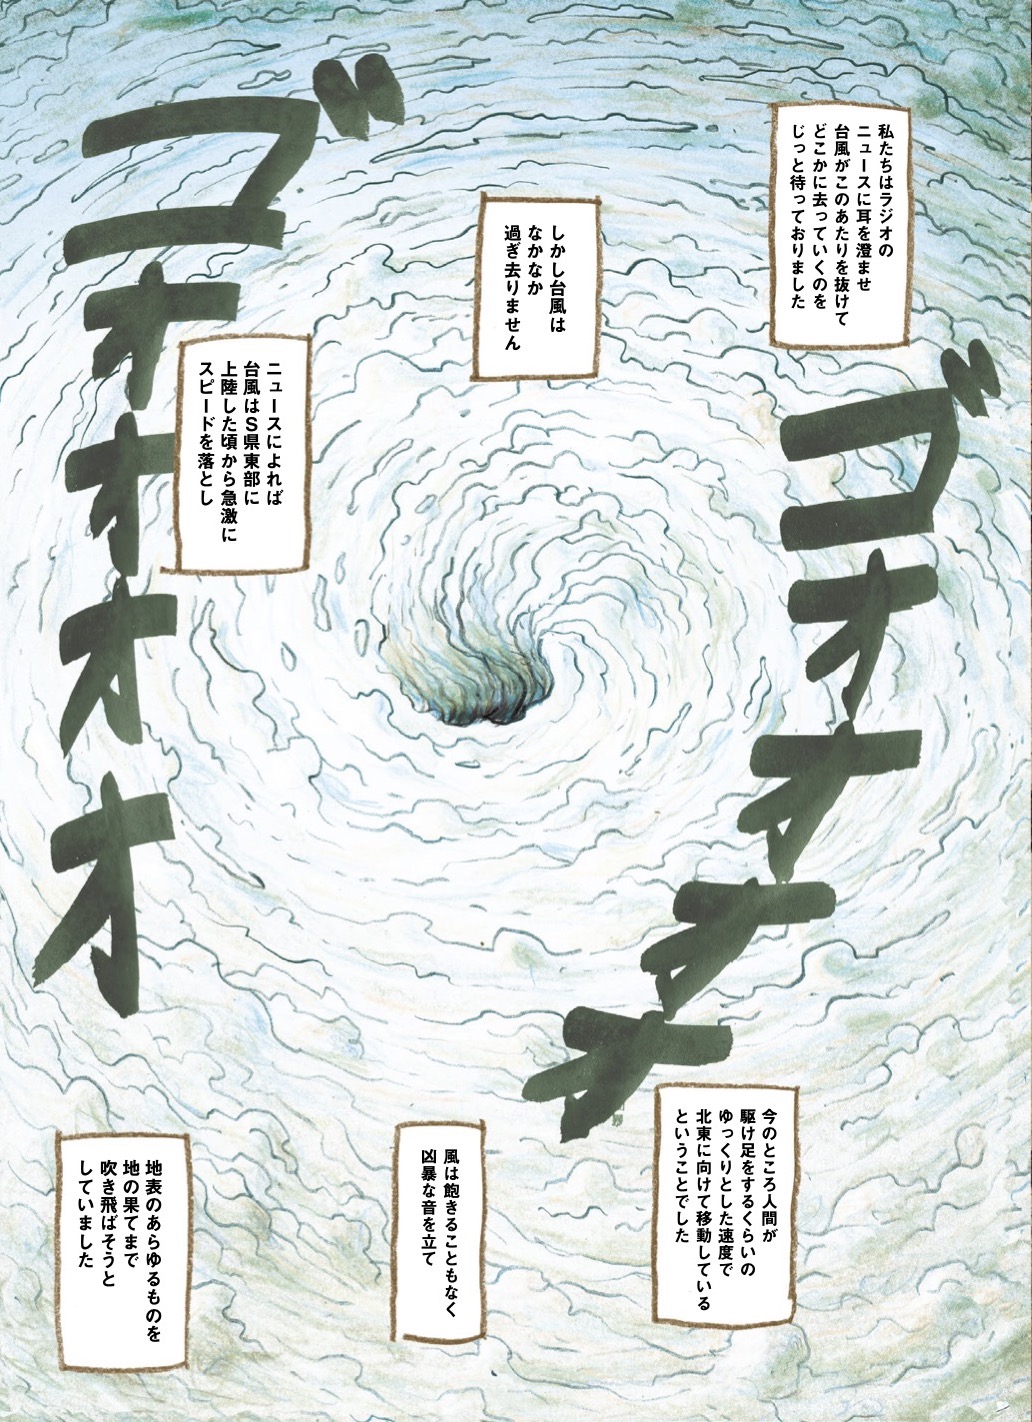 私たちはラジオの
ニュースに耳を澄ませ
台風がこのあたりを抜けて
どこかに去っていくのを
じっと待っておりました
しかし台風は
なかなか
過ぎ去りません
ニュースによれば
台風はS県東部に
上陸した頃から急激に
スピードを落とし
ゴオオオオ
ゴオオオオ
今のところ人間が
駆け足をするくらいの
ゆっくりとした速度で
北東に向けて移動している
ということでした
風は飽きることもなく
凶暴な音を立て
地表のあらゆるものを
地の果てまで
吹き飛ばそうと
していました